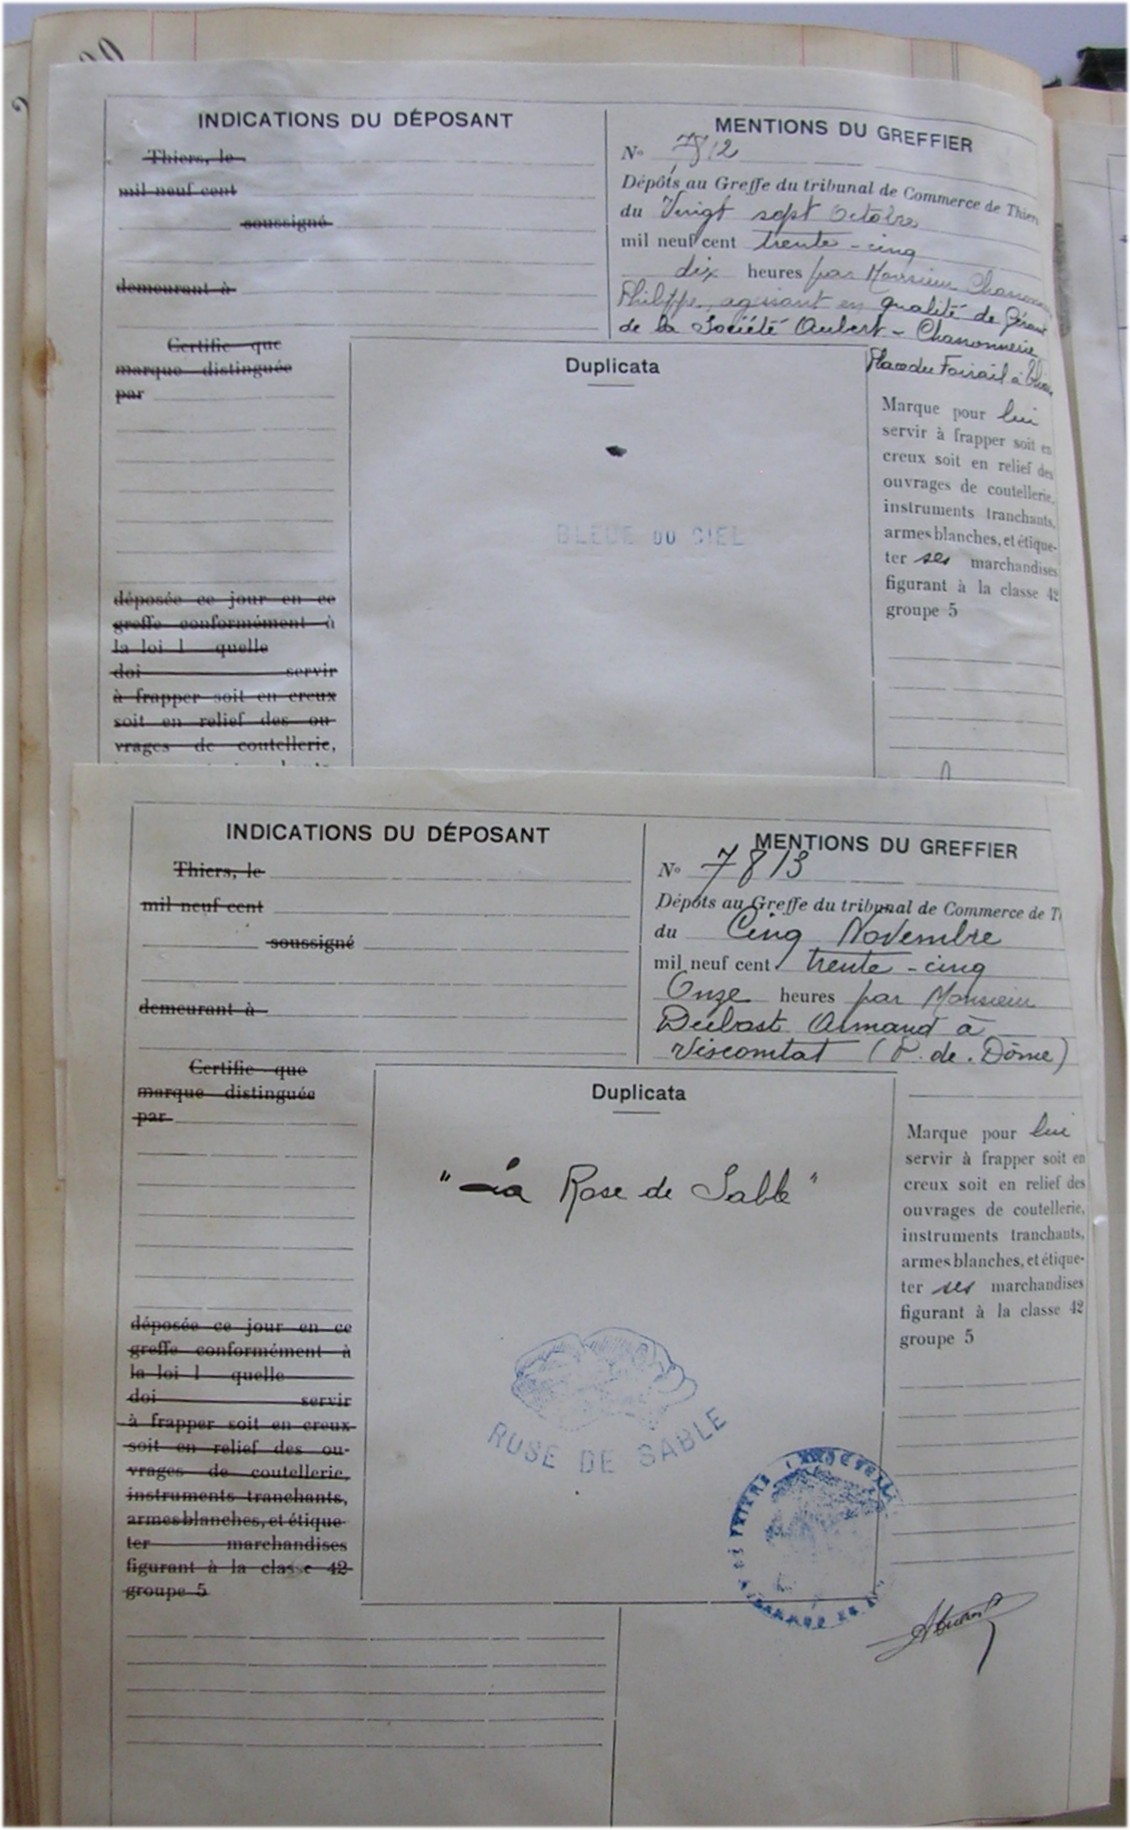 INDICATIONS DU DÉPOSANT
Thiers, le
mil neuf cent
soussigné
demeurant à
Certifie que
marque distinguée
par
déposée ce jour en ce
greffe conformément à
la loi l quelle
doi servir
à frapper soit en creux
soit en relief des ou-
vrages de coutellerie,
MENTIONS DU GREFFIER
N° 7812
Dépôts au Greffe du tribunal de Commerce de Thiers
du Vingt sept Octobre
mil neuf cent trente-cinq
dix heures par Monsieur
Philippe, agissant en qualité de Gérant
de la Société Aubert - Chanonnerie
Place du Foirail à
Duplicata
BLEUE DU CIEL
Marque pour lui
servir à frapper soit en
creux soit en relief des
ouvrages de coutellerie,
instruments tranchants,
armes blanches, et étique-
ter ses marchandises
figurant à la classe 42
groupe 5
INDICATIONS DU DÉPOSANT
Thiers, le
mil neuf cent
soussigné
demeurant à
Certifie que
marque distinguée
par
déposée ce jour en ce
greffe conformément à
la loi l quelle
doi servir
à frapper soit en creux
soit en relief des ou-
vrages de coutellerie,
instruments tranchants,
armes blanches, et étique-
ter marchandises
figurant à la classe 42
groupe 5
MENTIONS DU GREFFIER
N° 7813
Dépôts au Greffe du tribunal de Commerce de T
du Cinq Novembre
mil neuf cent trente-cinq
Onze heures par Monsieur
Dubost Armand à
Viscomtat (P. de. Dôme)
Duplicata
"La Rose de Sable"
ROSE DE SABLE
Marque pour lui
servir à frapper soit en
creux soit en relief des
ouvrages de coutellerie,
instruments tranchants,
armes blanches, et étique-
ter ses marchandises
figurant à la classe 42
groupe 5